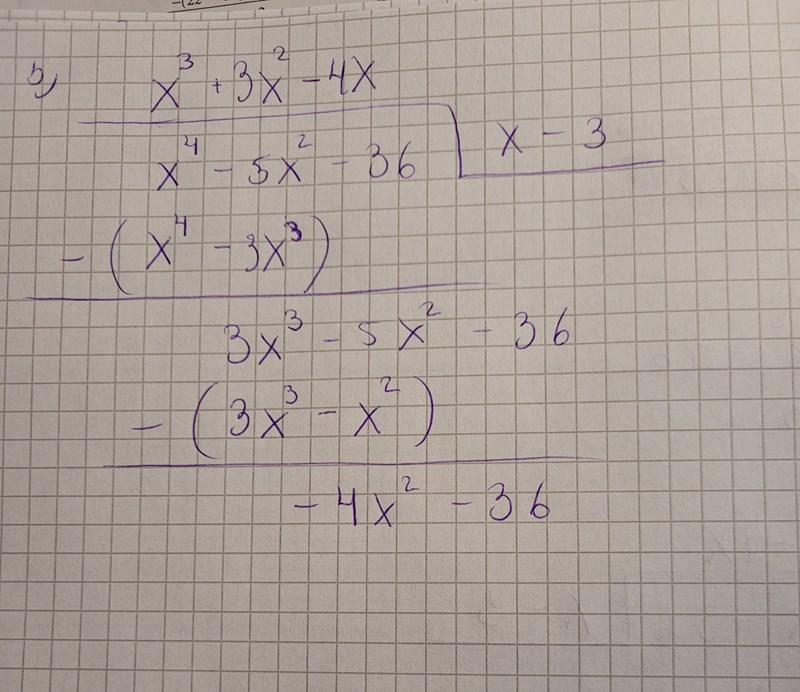 b) x³ + 3x² - 4x
x⁴ - 5x² - 36 | x - 3
- (x⁴ - 3x³)
3x³ - 5x² - 36
- (3x³ - x²)
- 4x² - 36